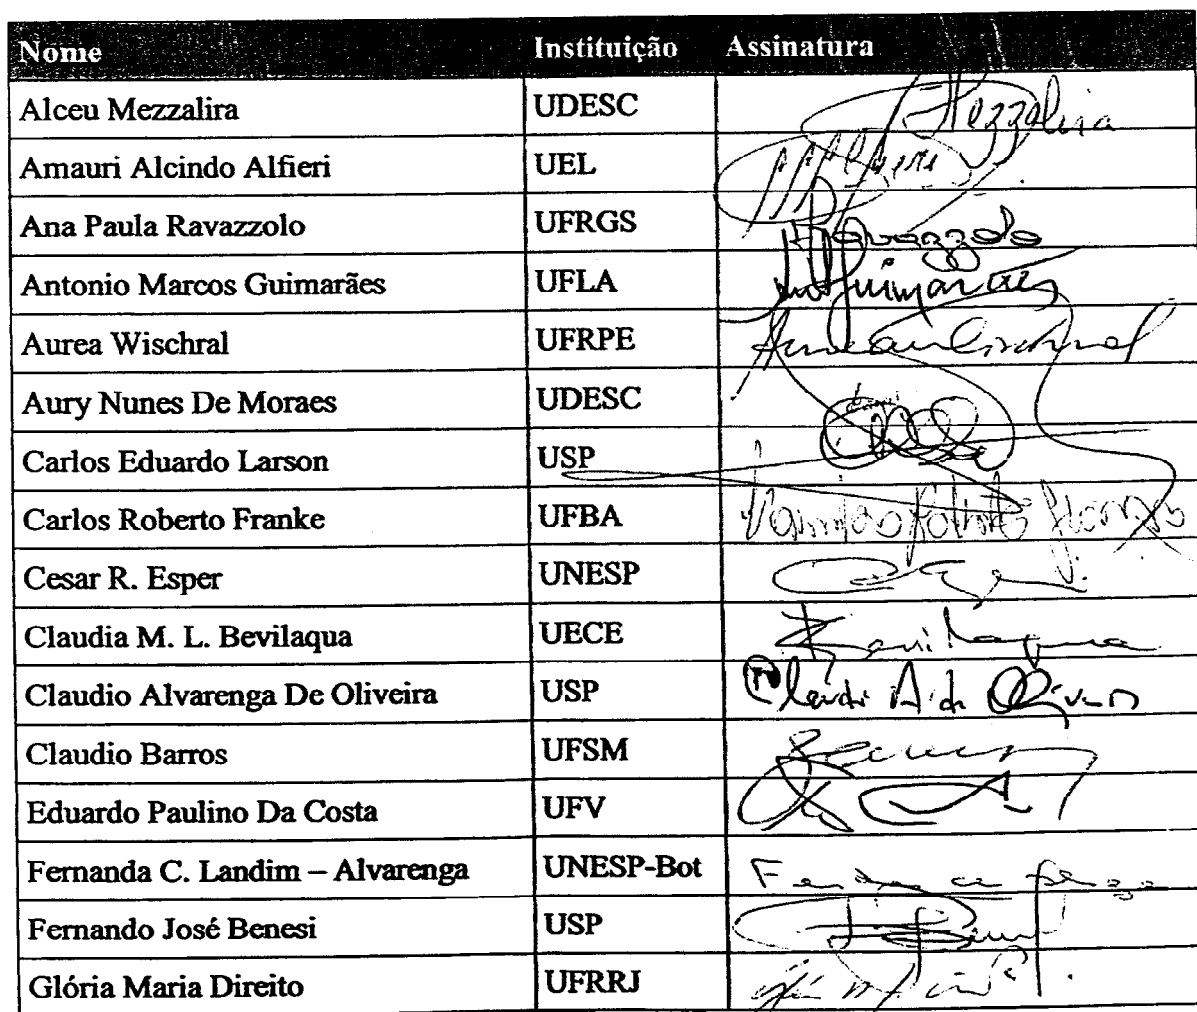 Nome Instituição Assinatura
Alceu Mezzalira UDESC Mezzalira
Amauri Alcindo Alfieri UEL
Ana Paula Ravazzolo UFRGS Ravazzolo
Antonio Marcos Guimarães UFLA Guimarães
Aurea Wischral UFRPE Aurea Wischral
Aury Nunes De Moraes UDESC
Carlos Eduardo Larson USP
Carlos Roberto Franke UFBA
Cesar R. Esper UNESP
Claudia M. L. Bevilaqua UECE Bevilaqua
Claudio Alvarenga De Oliveira USP Claudio A. de Oliveira
Claudio Barros UFSM
Eduardo Paulino Da Costa UFV
Fernanda C. Landim – Alvarenga UNESP-Bot
Fernando José Benesi USP
Glória Maria Direito UFRRJ